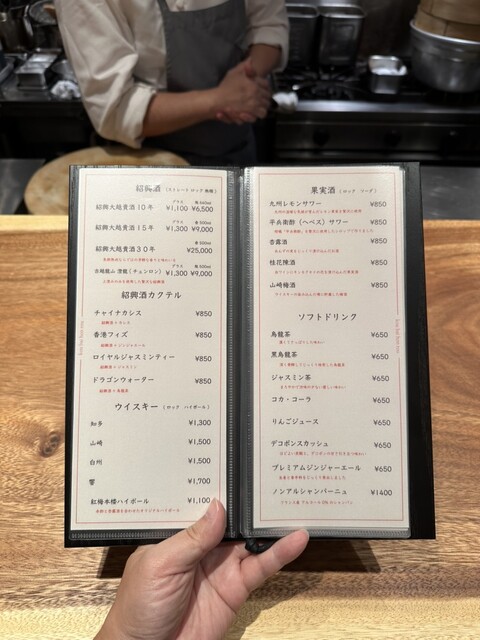 紹興酒 (ストレート ロック 熱燗)
グラス 瓶 500ml
紹興大越貴酒10年 ¥1,100 ¥6,500
グラス 瓶 500ml
紹興大越貴酒15年 ¥1,300 ¥9,000
瓶 500ml
紹興大越貴酒30年 ¥25,000
グラス 瓶 500ml
古越龍山 澄龍(チェンロン) ¥1,300 ¥9,000
紹興酒カクテル
チャイナカシス ¥850
紹興酒×カシス
香港フィズ ¥850
紹興酒×ジンジャエール
ロイヤルジャスミンティー ¥850
紹興酒×ジャスミン
ドラゴンウォーター ¥850
紹興酒×烏龍茶
ウイスキー (ロック ハイボール)
知多 ¥1,300
山崎 ¥1,500
白州 ¥1,500
響 ¥1,700
紅梅本樓ハイボール ¥1,100
果実酒 (ロック ソーダ)
九州レモンサワー ¥850
平兵衛酢(ヘベス)サワー ¥850
杏露酒 ¥850
桂花陳酒 ¥850
山崎梅酒 ¥850
ソフトドリンク
烏龍茶 ¥650
黒烏龍茶 ¥650
ジャスミン茶 ¥650
コカ・コーラ ¥650
りんごジュース ¥650
デコポンスカッシュ ¥650
プレミアムジンジャーエール ¥650
ノンアルシャンパーニュ ¥1400
フランス産 アルコール0% のシャンパン